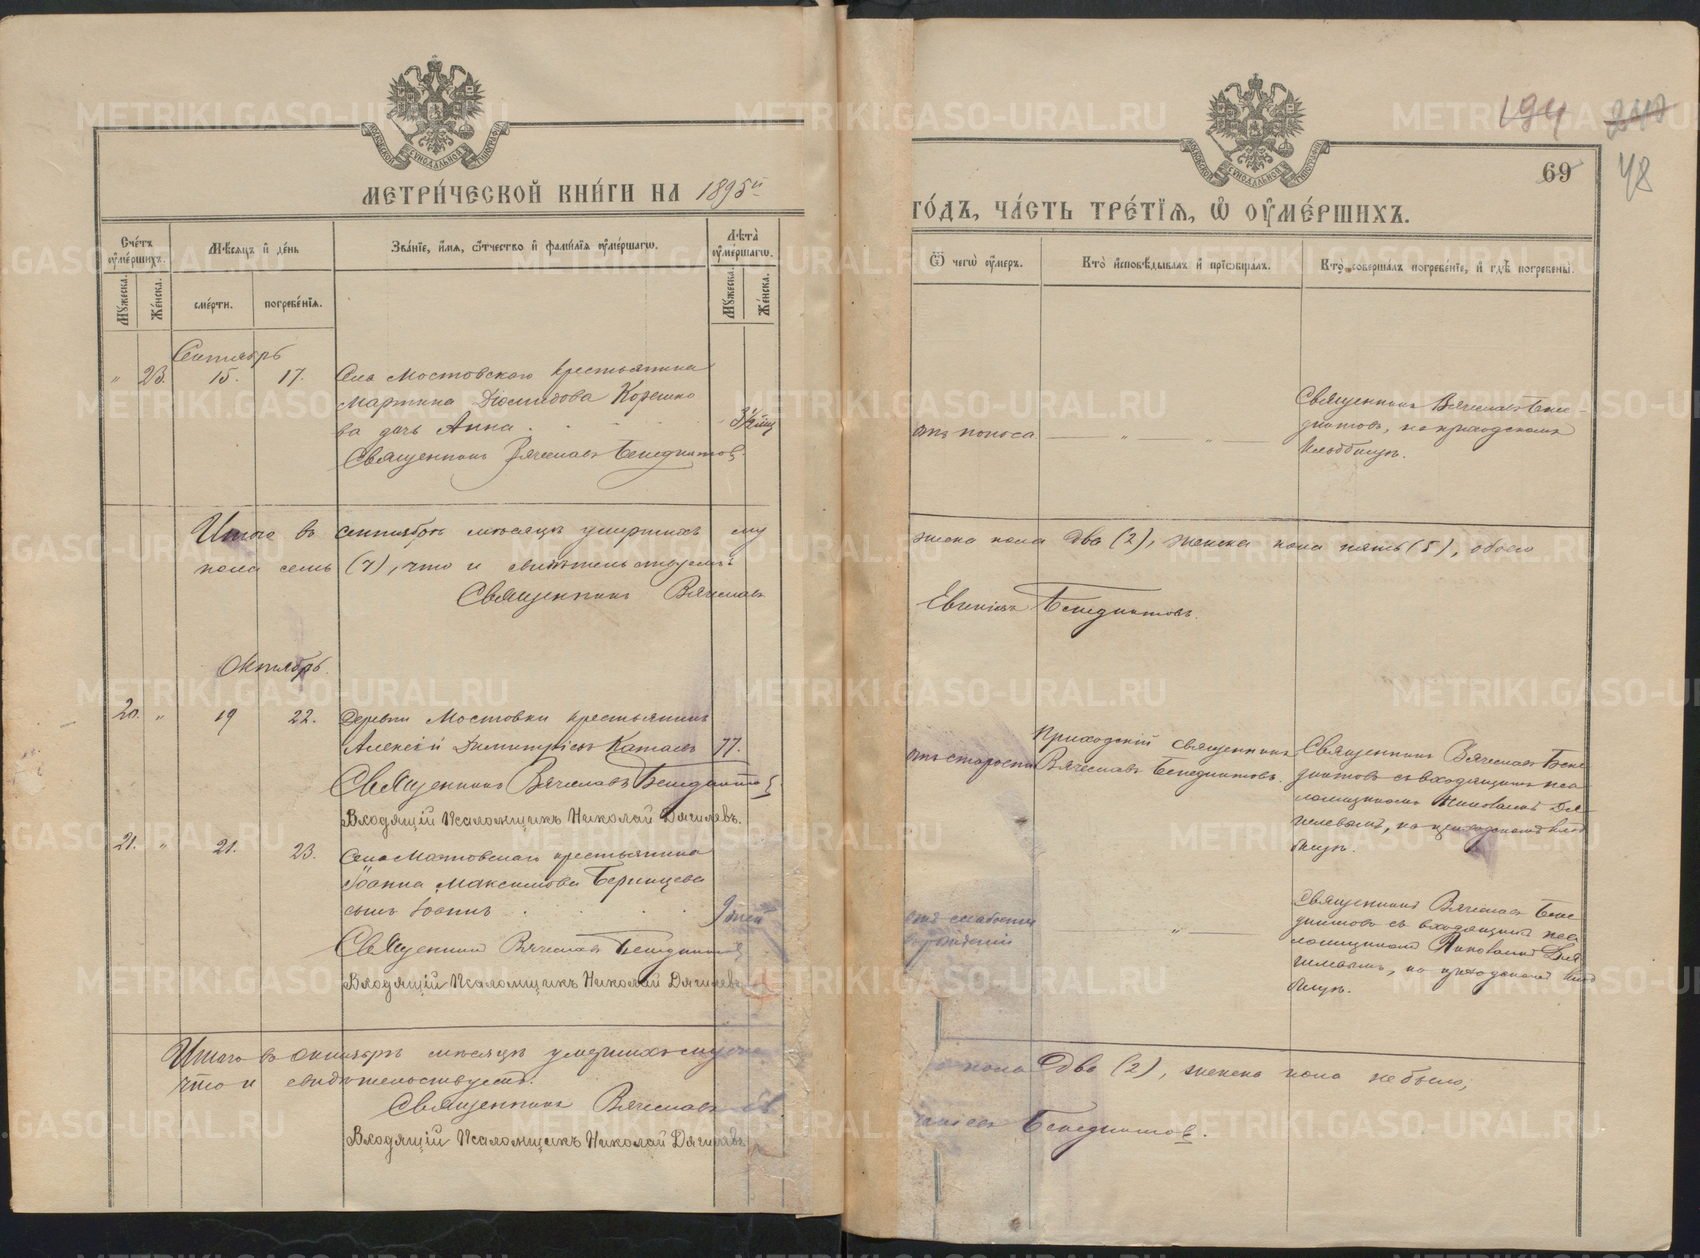 МЕТРИ́ЧЕСКОЙ КНИ́ГИ НА 1895й
ГО́ДЪ, ЧА́СТЬ ТРЕ́ТІѦ, Ѽ ОУ҆МЕ́РШИХЪ.
194 247
69 48
Сче́тъ оу҆ме́ршихъ.
Мꙋ́жеска.
Же́нска.
Мѣ́сѧцъ и҆ де́нь
сме́рти.
погребе́нїѧ.
Зва́нїе, и҆́мѧ, ѻ҆́тчество и҆ фами́лїѧ оу҆ме́ршагѡ.
Лѣ́та оу҆ме́ршагѡ.
Мꙋ́жеска.
Же́нска.
Ѿ чегѡ̀ оу҆́меръ.
Кто̀ и҆сповѣ́дывалъ и҆ прїѡбща́лъ.
Кто̀ соверша́лъ погребе́нїе, и҆ гдѣ̀ погребены̀.
Сентябрь
" 23. 15. 17. Села Мостовскаго крестьянина
Мартина Діомидова Корешко
ва дочь Анна.
Священникъ Вячеславъ Бенедиктовъ.
отъ поноса
Священникъ Вячеславъ Бене-
диктовъ, на приходскомъ
кладбищѣ.
Итого въ Сентябрѣ мѣсяцѣ умершихъ му
жеска пола два (2), женска пола пять (5), обоего
пола семь (7), что и свидѣтельствуемъ:
Священникъ Вячеславъ
Евгеніевъ Бенедиктовъ.
Октябрь.
20. " 19 22. Деревни Мостовки крестьянинъ
Алексій Димитріевъ 77.
Священникъ Вячеславъ Бенедиктовъ
Входящій Псаломщикъ Николай Дягилевъ.
отъ старости
Приходскій священникъ
Вячеславъ Бенедиктовъ.
Священникъ Вячеславъ Бене
диктовъ съ входящимъ пса
ломщикомъ Николаемъ Дя
гилевымъ, на приходскомъ клад
бищѣ.
21. " 21. 23. Села Мостовскаго крестьянина
Іоанна Максимова Берницева
сынъ Іоаннъ 9 дней
Священникъ Вячеславъ Бенедиктовъ
Входящій Псаломщикъ Николай Дягилевъ
отъ слабости
рожденія
"
Священникъ Вячеславъ Бене
диктовъ съ входящимъ пса
ломщикомъ Николаемъ Дя
гилевымъ, на приходскомъ клад
бищѣ.
Итого въ Октябрѣ мѣсяцѣ умершихъ муже
ска пола два (2), женска пола не было;
что и свидѣтельствуемъ:
Священникъ Вячеславъ Ев
геніевъ Бенедиктовъ.
Входящій Псаломщикъ Николай Дягилевъ
METRIKI.GASO-URAL.RU